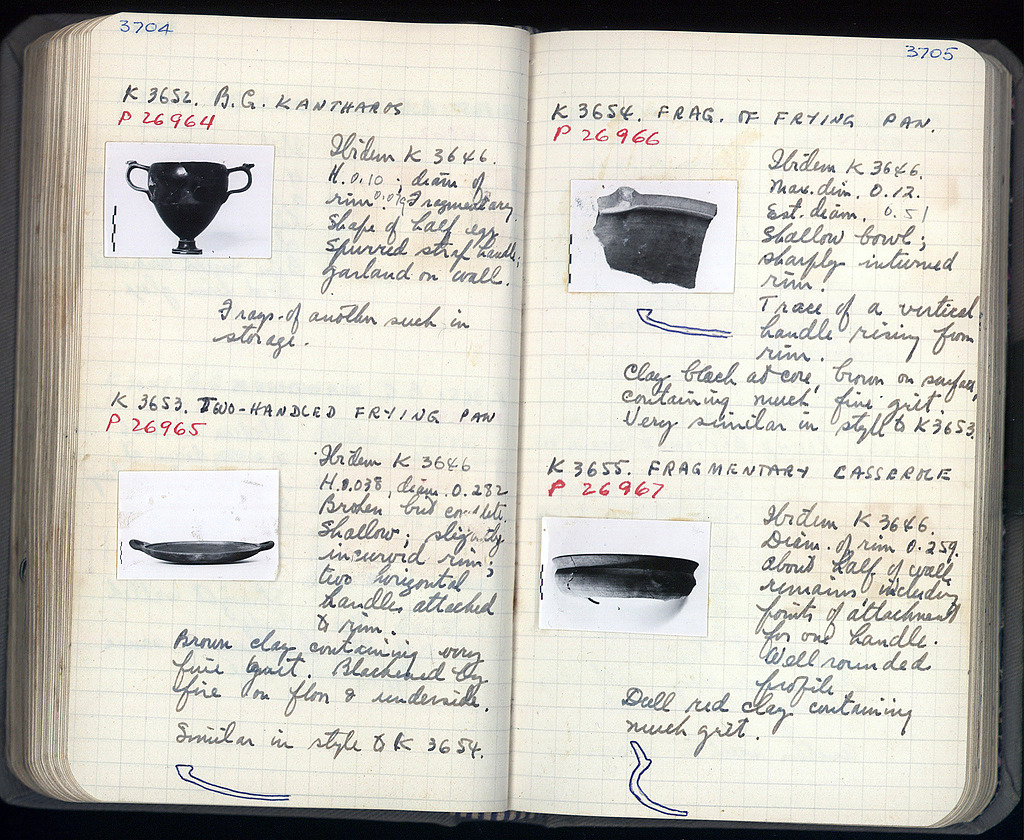 3704
K 3652. B.G. KANTHAROS
P 26964
Ibidem K 3646.
H. 0.10 ; diam of
rim 0.079 Fragmentary.
Shape of half egg
Spurred strap handle;
garland on wall.
Frags. of another such in
storage.
K 3653. TWO-HANDLED FRYING PAN
P 26965
Ibidem K 3646
H. 0.038, diam. 0.282
Broken but complete.
Shallow; slightly
incurved rim;
two horizontal
handles attached
to rim.
Brown clay containing very
fine grit. Blackened by
fire on floor & underside.
Similar in style to K 3654.
3705
K 3654. FRAG. OF FRYING PAN.
P 26966
Ibidem K 3646.
Max. dim. 0.12.
Est. diam. 0.51
Shallow bowl;
sharply inturned
rim.
Trace of a vertical
handle rising from
rim.
Clay black at core, brown on surface,
containing much fine grit.
Very similar in style to K 3653.
K 3655. FRAGMENTARY CASSEROLE
P 26967
Ibidem K 3646.
Diam. of rim 0.259.
About half of wall
remains including
points of attachment
for one handle.
Well rounded
profile
Dull red clay containing
much grit.